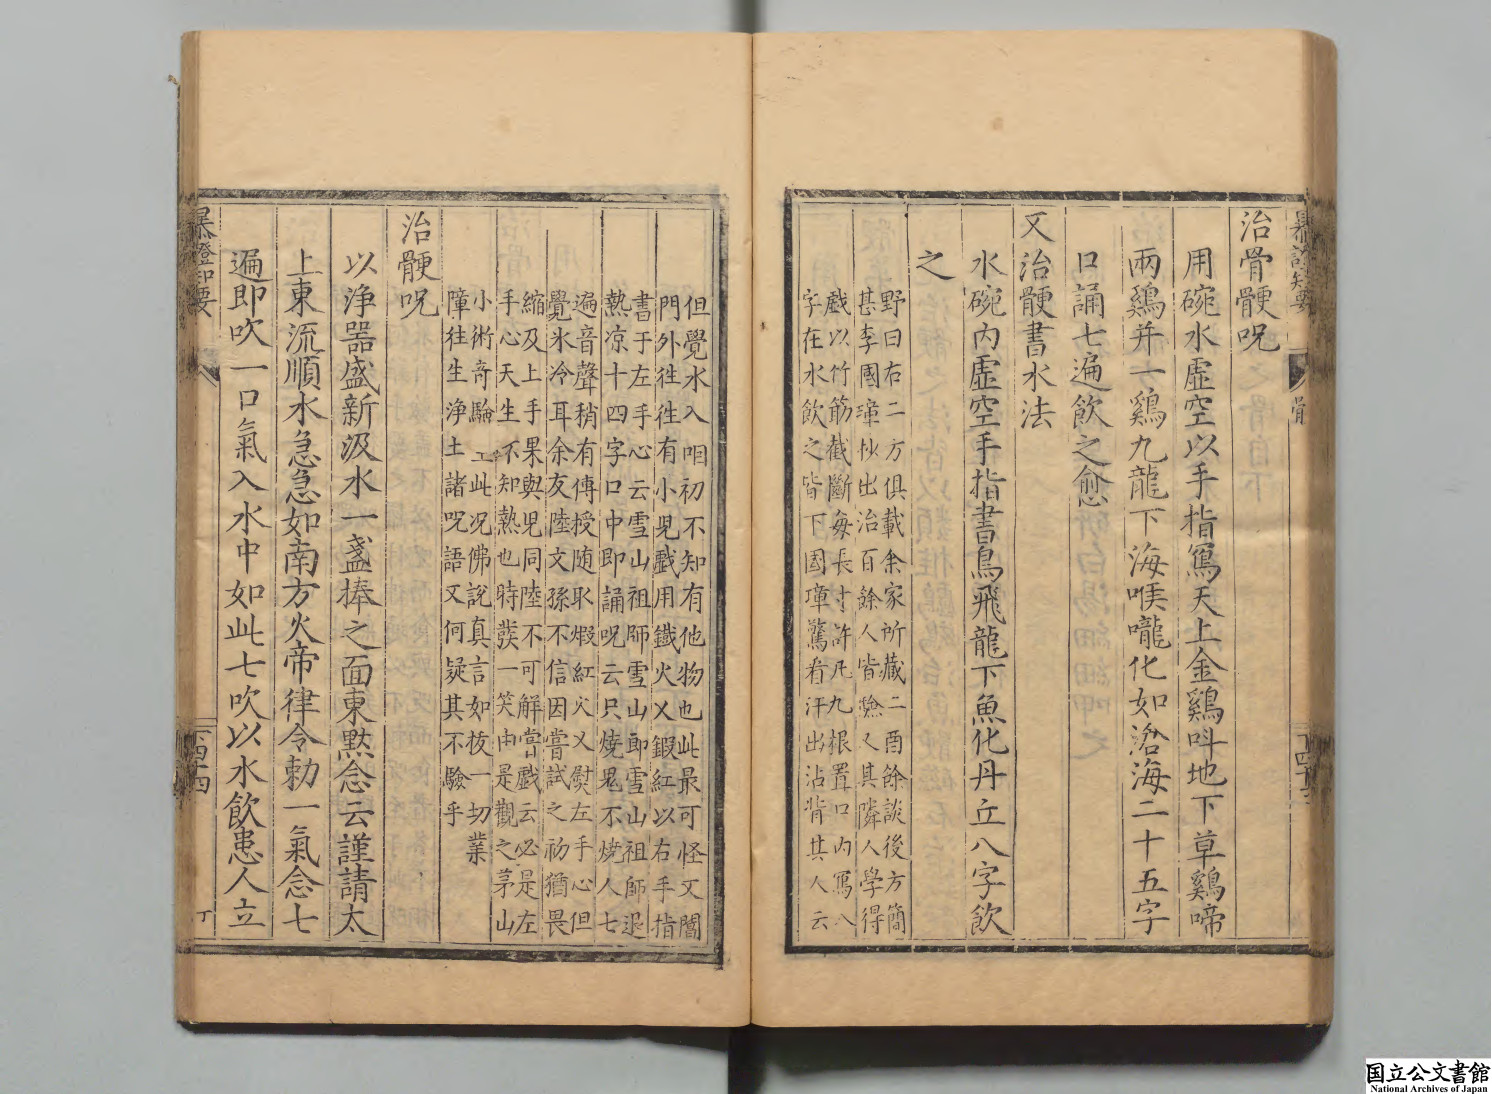 治骨骾呪
用碗水虛空以手指寫天上金鷄呌地下草鷄啼
兩鷄并一鷄九龍下海喉嚨化如滄海二十五字
口誦七遍飲之愈
又治骾書水法
水碗内虛空手指書鳥飛龍下魚化丹丘八字飲
之
野曰右二方俱載余家所藏二酉餘談後方簡
甚李國璋抄出治百餘人皆驗又其隣人學得
戲以竹筋截斷每長寸許凡九根置口内寫八
字在水飲之皆下國璋驚看汗出沾背其人云
但覺水入咽初不知有他物也此最可怪又閩
門外徃徃有小兒戲用鐵火乂鍜紅以右手指
書于左手心云雪山祖師雪山郎雪山祖師退
熱凉十四字口中即誦呪云只燒鬼不燒人七
遍音聲稍有傳授随取煆紅火乂熨左手心但
覺氷冷耳余友陸文孫不信因嘗試之初猶畏
縮及上手果與兒同陸不可解嘗戲云必是左
手心天生不知熱也時發一笑由是觀之茅山
小術奇驗如此况佛說真言如拔一切業
障徃生淨土諸呪語又何疑其不驗乎
治骾呪
以淨器盛新汲水一盞捧之面東黙念云謹請太
上東流順水急急如南方火帝律令勅一氣念七
遍即吹一口氣入水中如此七吹以水飲患人立
暴證知要
骨
下四十三
暴證知要
下四十四
丁
国立公文書館
National Archives of Japan